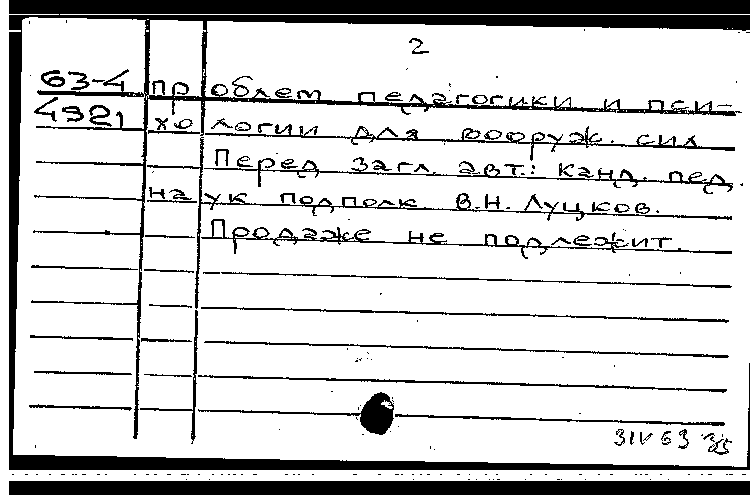 2
63-4 проблем педагогики и пси-
4921 хологии для вооруж. сил
Перед загл. авт.: канд. пед.
наук подполк. В.Н. Луцков.
Продаже не подлежит.
3IV63